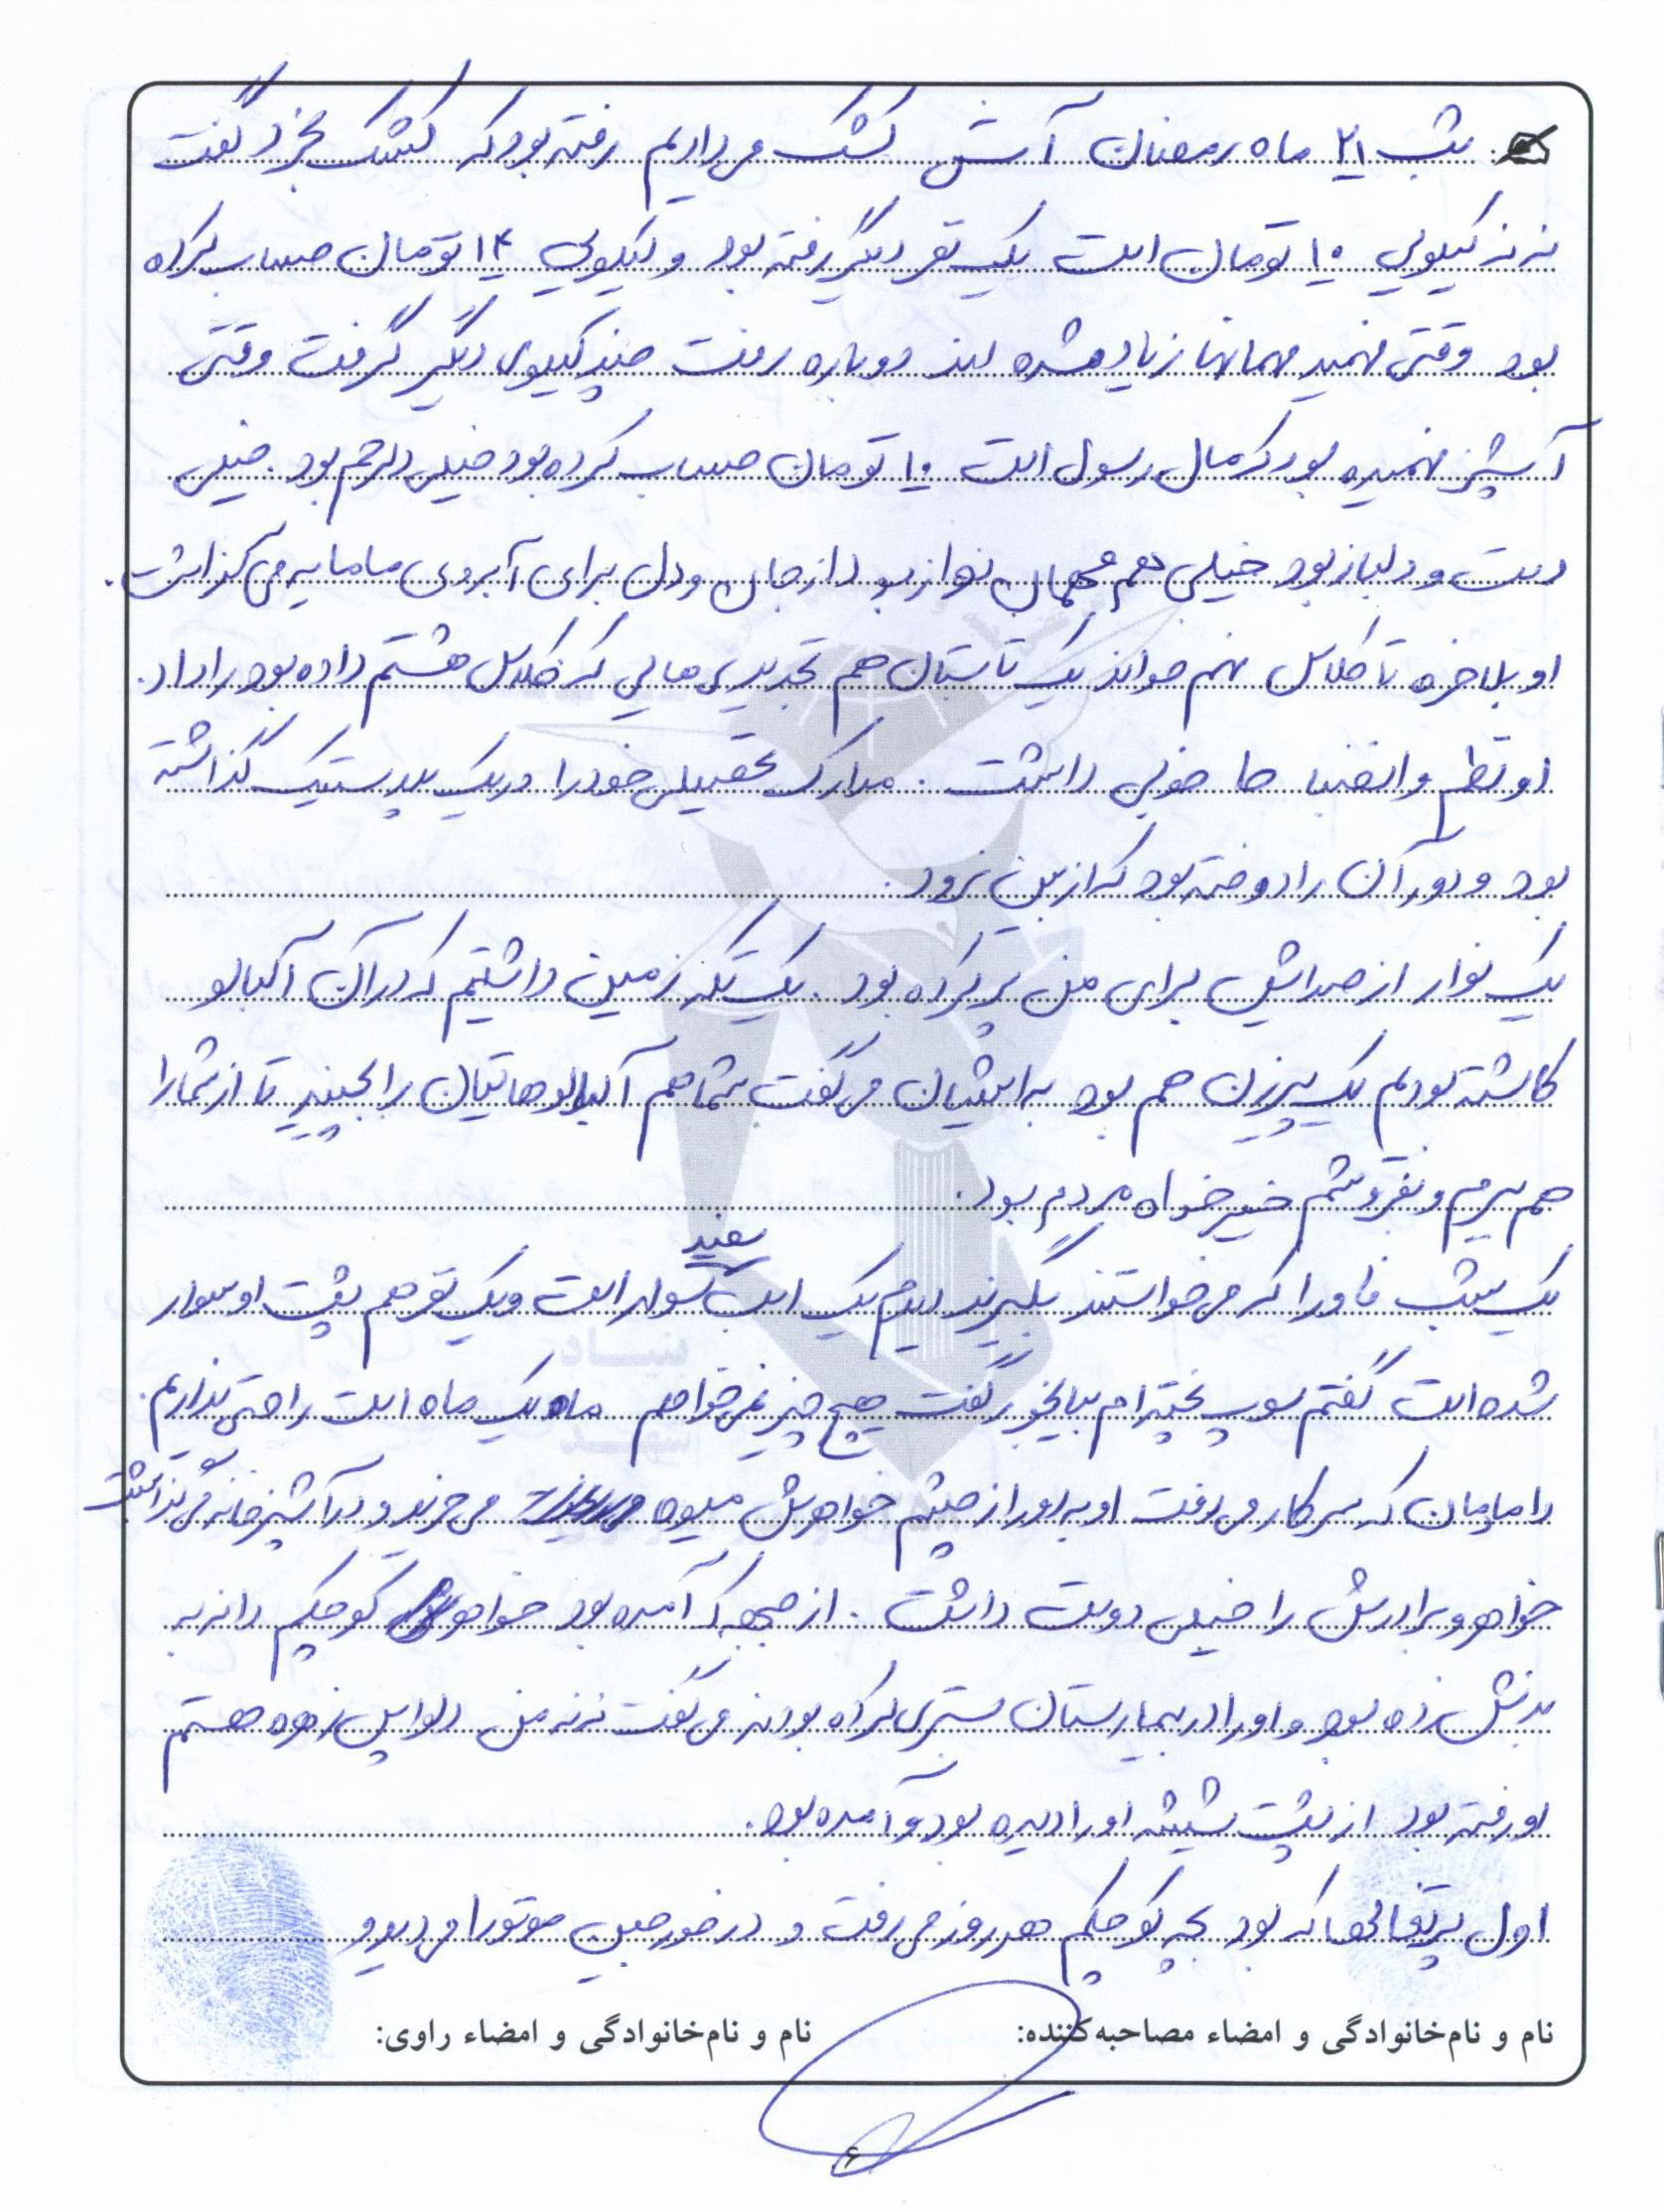 شب ۲۱ ماه رمضان آش کشک می داریم رفته بود که کشک بخرد گفت
نه نه کیلویی ۱۰ تومان است یک نفر دیگر رفته بود و کیلویی ۱۴ تومان حساب کرده
بود وقتی فهمید مهمانها زیاد شده اند دوباره رفت چند کیلوی دیگر گرفت وقتی
آشپز فهمیده بود که مال رسول است ۱۰ تومان حساب کرده بود خیلی دلرحم بود. خیلی
دست و دلباز بود خیلی هم مهمان نواز بود از جان و دل برای آبروی ما مایه می گذاشت.
او بلاخره تا کلاس نهم خواند یک تابستان هم تجدیدی هایی که کلاس هشتم داده بود را داد.
او نظم و انضباط خوبی داشت. مدارک تحصیلی خود را در یک پلاستیک گذاشته
بود و دور آن را دوخته بود که از بین نرود.
یک نوار از صدایش برای من پر کرده بود. یک تکه زمین داشتیم که در آن آلبالو
کاشته بودیم یک پیرزن هم بود به ایشان می گفت شما هم آلبالوهایتان را بچینید تا از شما را
هم ببرم و بفروشم خیرخواه مردم بود.
سفید
یک شب فاو را که می خواستند بگیرند دیدم یک اسب سوار است و یک نفر هم پشت او سوار
شده است گفتم سوپ پخته ام بیا بخور گفت هیچ چیز نمی خواهم ما یک ماه است راحتی نداریم.
دامادمان که سر کار می رفت او به دور از چشم خواهرش میوه می خرید و در آشپزخانه می گذاشت
خواهر و برادرش را خیلی دوست داشت. از جبهه که آمده بود خواهر کوچکم دانه به
بدنش زده بود و او را در بیمارستان بستری کرده بودند می گفت نه نه من دلواپس زهره هستم
او رفته بود از پشت شیشه او را دیده بود و آمده بود.
اول پرتقالی ها که بود بچه کوچکم هر روز می رفت و در خورجین موتور را می دید و
نام و نام‌خانوادگی و امضاء مصاحبه‌کننده: نام و نام‌خانوادگی و امضاء راوی:
۶